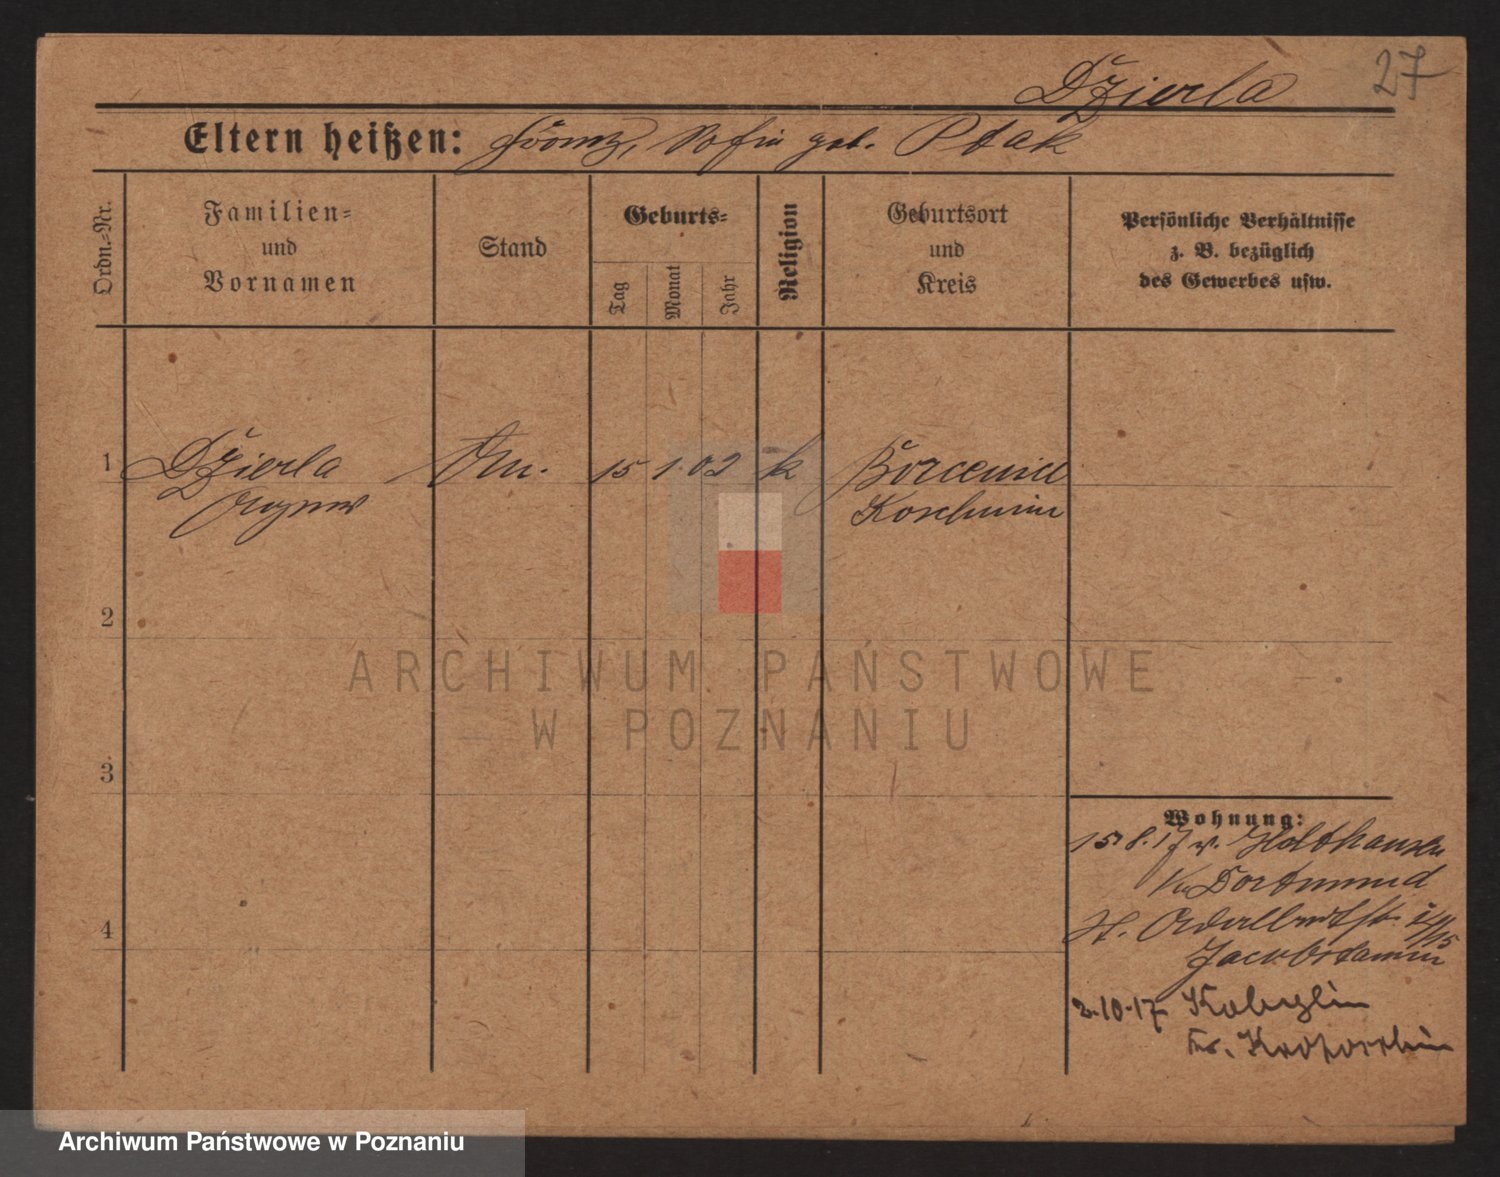 27
Dżierla
Eltern heißen: Franz, Sofie geb. Ptak
Ordn.-Nr.
Familien-
und
Vornamen
Stand
Geburts-
Tag
Monat
Jahr
Religion
Geburtsort
und
Kreis
Persönliche Verhältnisse
z. B. bezüglich
des Gewerbes usw.
1 Dżierla 15 1 02 k
Koschmin
2
3
4
Wohnung:
15.8.17 v. Holthausen
Kr. Dortmund
2.10.17 Kobylin
Kr. Krotoschin
ARCHIWUM PAŃSTWOWE
W POZNANIU
Archiwum Państwowe w Poznaniu